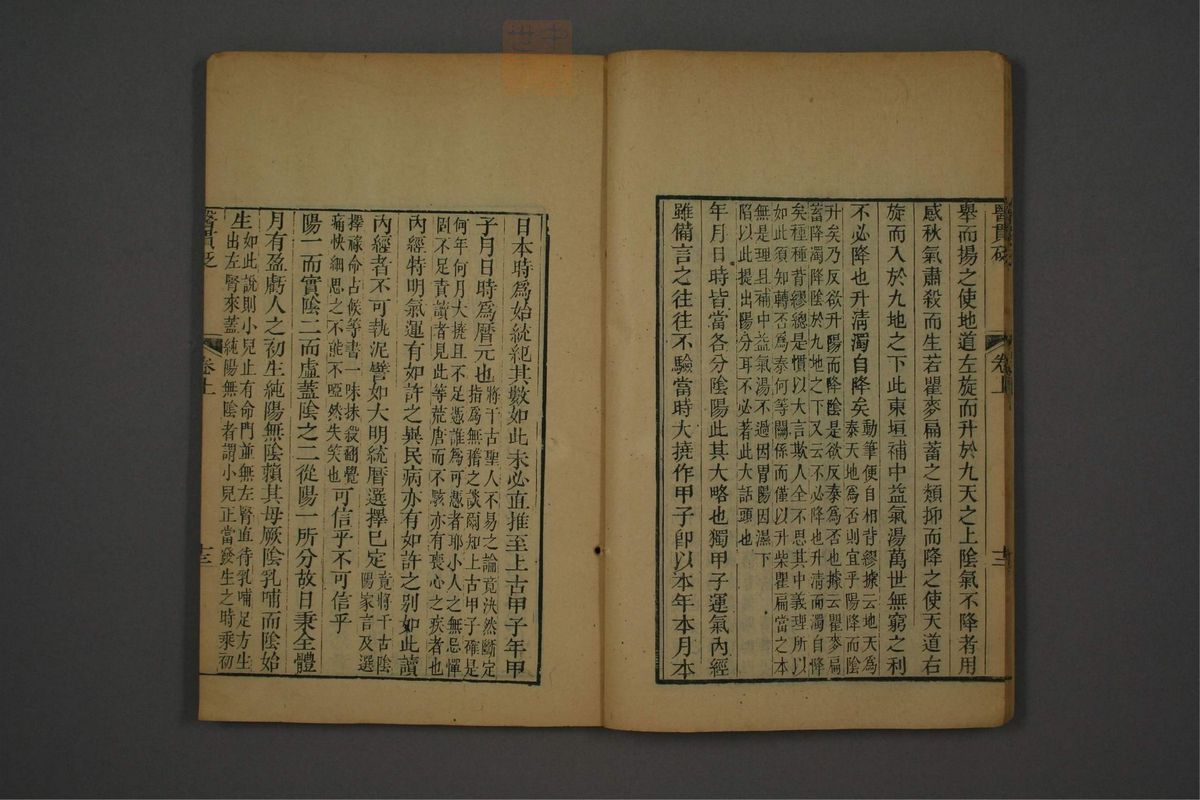 醫貫砭
卷上
十三
舉而揚之使地道左旋而升於九天之上陰氣不降者用
感秋氣肅殺而生若瞿麥扁蓄之類抑而降之使天道右
旋而入於九地之下此東垣補中益氣湯萬世無窮之利
不必降也升清濁自降矣動筆便自相背繆據云地天為
泰天地為否則宜乎陽降而陰
升矣乃反欲升陽而降陰是欲反泰為否也據云瞿麥扁
蓄降濁降陰於九地之下又云不必降也升清而濁自降
矣種種背繆總是慣以大言欺人全不思其中義理所以
如此須知轉否為泰何等關係而僅以升柴瞿扁當之本
無是理且補中益氣湯不過因胃陽因濕下
陷以此提出陽分耳不必著此大話頭也
年月日時皆當各分陰陽此其大略也獨甲子運氣內經
雖備言之往往不驗當時大撓作甲子即以本年本月本
日本時為始統紀其數如此未必直推至上古甲子年甲
子月日時為曆元也將千古聖人不易之論竟決然斷定
指為無稽之談爾知上古甲子確是
何年何月大撓且不足憑誰為可憑者耶小人之無忌憚
固不足責讀者見此等荒唐而不駭亦有喪心之疾者也
內經特明氣運有如許之異民病亦有如許之別如此讀
內經者不可執泥譬如大明統曆選擇已定竟將千古陰
陽家言及選
擇祿命占候等書一味抹殺翻覺
痛快細思之不能不啞然失笑也可信乎不可信乎
陽一而實陰二而虛蓋陰之二從陽一所分故日秉全體
月有盈虧人之初生純陽無陰賴其母厥陰乳哺而陰始
生如此說則小兒止有命門並無左腎直待乳哺足方生
出左腎來蓋純陽無陰者謂小兒正當發生之時乘初
醫貫砭
卷上
十三